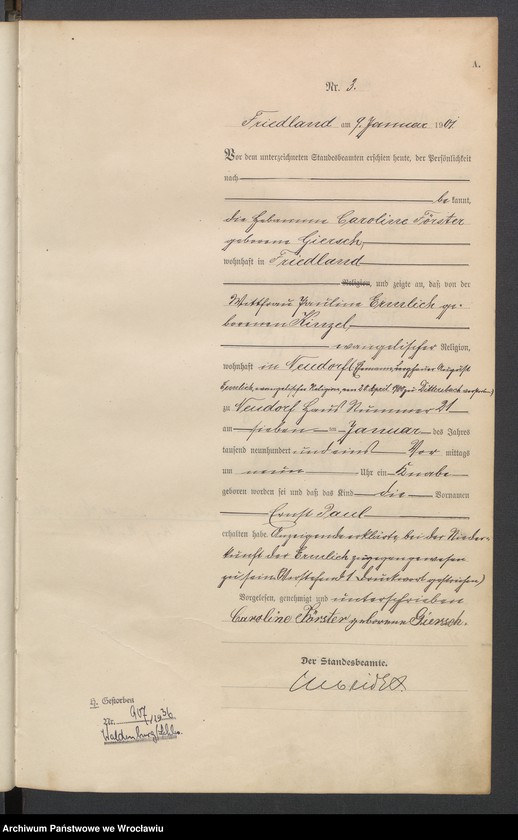 A.
Nr. 3.
Friedland am 9. Januar 1901.
Vor dem unterzeichneten Standesbeamten erschien heute, der Persönlichkeit
nach
be kannt,
die Hebamme Caroline Förster
geborene Giersch,
wohnhaft in Friedland
Religion, und zeigte an, daß von der
Wittfrau Pauline Ermlich ge-
borenen Kinzel
evangelischer Religion,
wohnhaft in Neudorf (Ehemann August
Ermlich, evangelischer Religion, am 28. April 1900 zu Dittersbach verstorben)
zu Neudorf Haus Nummer 21
am sieben ten Januar des Jahres
tausend neunhundert und eins Vor mittags
um neun Uhr ein Knabe
geboren worden sei und daß das Kind die Vornamen
Ernst Paul
erhalten habe. Anzeigende erklärte, bei der Nieder-
kunft der Ermlich zugegen gewesen
zu sein. (Vorstehend 1 Druckwort gestrichen)
Vorgelesen, genehmigt und unterschrieben
Caroline Förster geborene Giersch.
Der Standesbeamte.
H. Gestorben
Nr. 907/1936
Waldenburg/Schles.
Archiwum Państwowe we Wrocławiu